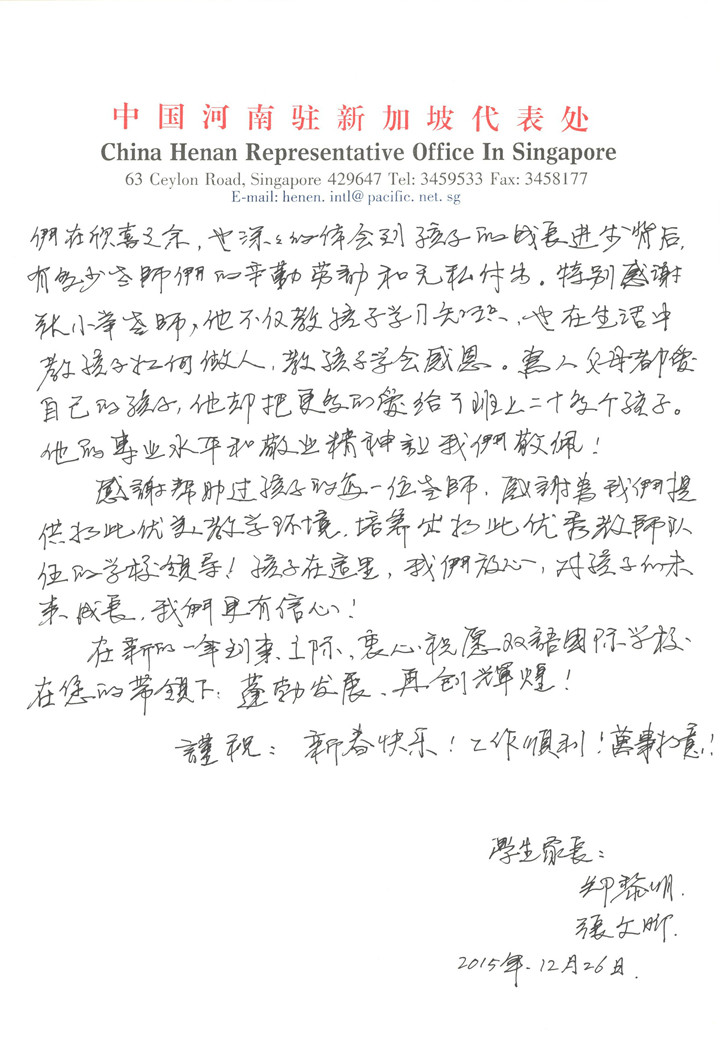 中国河南驻新加坡代表处
China Henan Representative Office In Singapore
63 Ceylon Road, Singapore 429647 Tel: 3459533 Fax: 3458177
E-mail: henen. intl@ pacific. net. sg
們在欣喜之余，也深深的体会到孩子的成长进步背后，
有多少老師們的辛勤劳动和无私付出。特别感谢
张小华老師，他不仅教孩子学习知识，也在生活中
教孩子如何做人，教孩子学会感恩。為人父母者都愛
自己的孩子，他却把更多的愛给了班上二十多个孩子。
他的专业水平和敬业精神让我們敬佩！
感謝帮助过孩子的每一位老師，感謝為我們提
供如此优美教学环境，培养出如此优秀教師队
伍的学校领导！孩子在這里，我們放心，对孩子的未
来成長，我們更有信心！
在新的一年到来之际，衷心祝愿双語國际学校
在您的带領下：蓬勃发展、再创輝煌！
謹祝：新春快乐！工作順利！萬事如意！
學生家長：
郑黎明.
張文
2015年.12月26日.